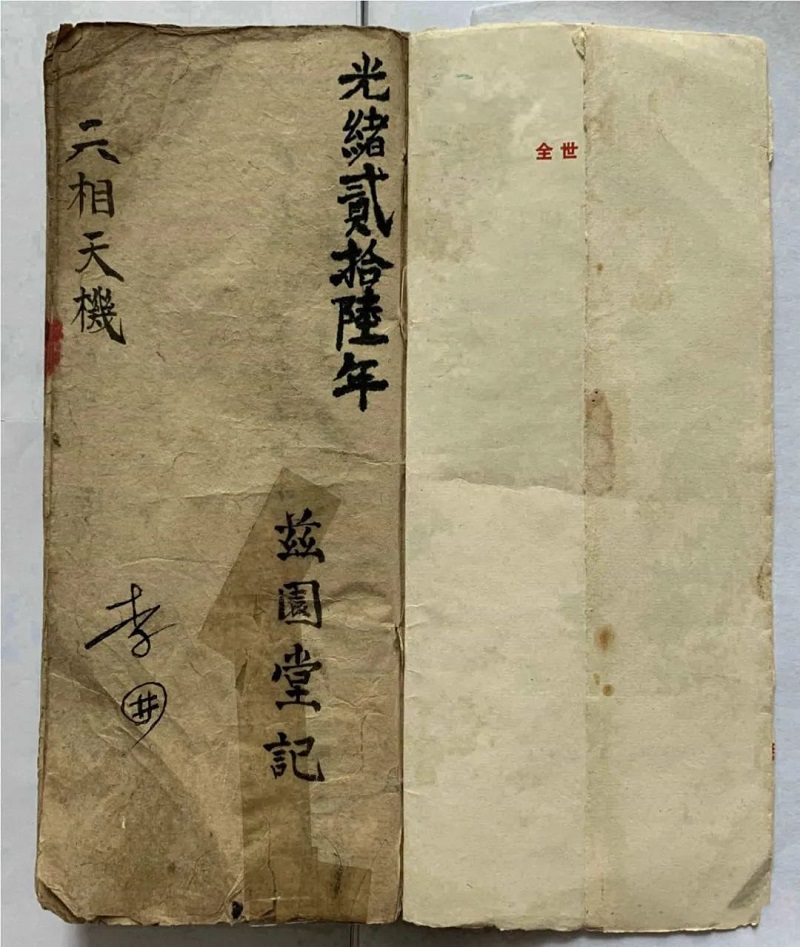 全世
光緒貳拾陸年
茲園堂記
六相天機
李
井